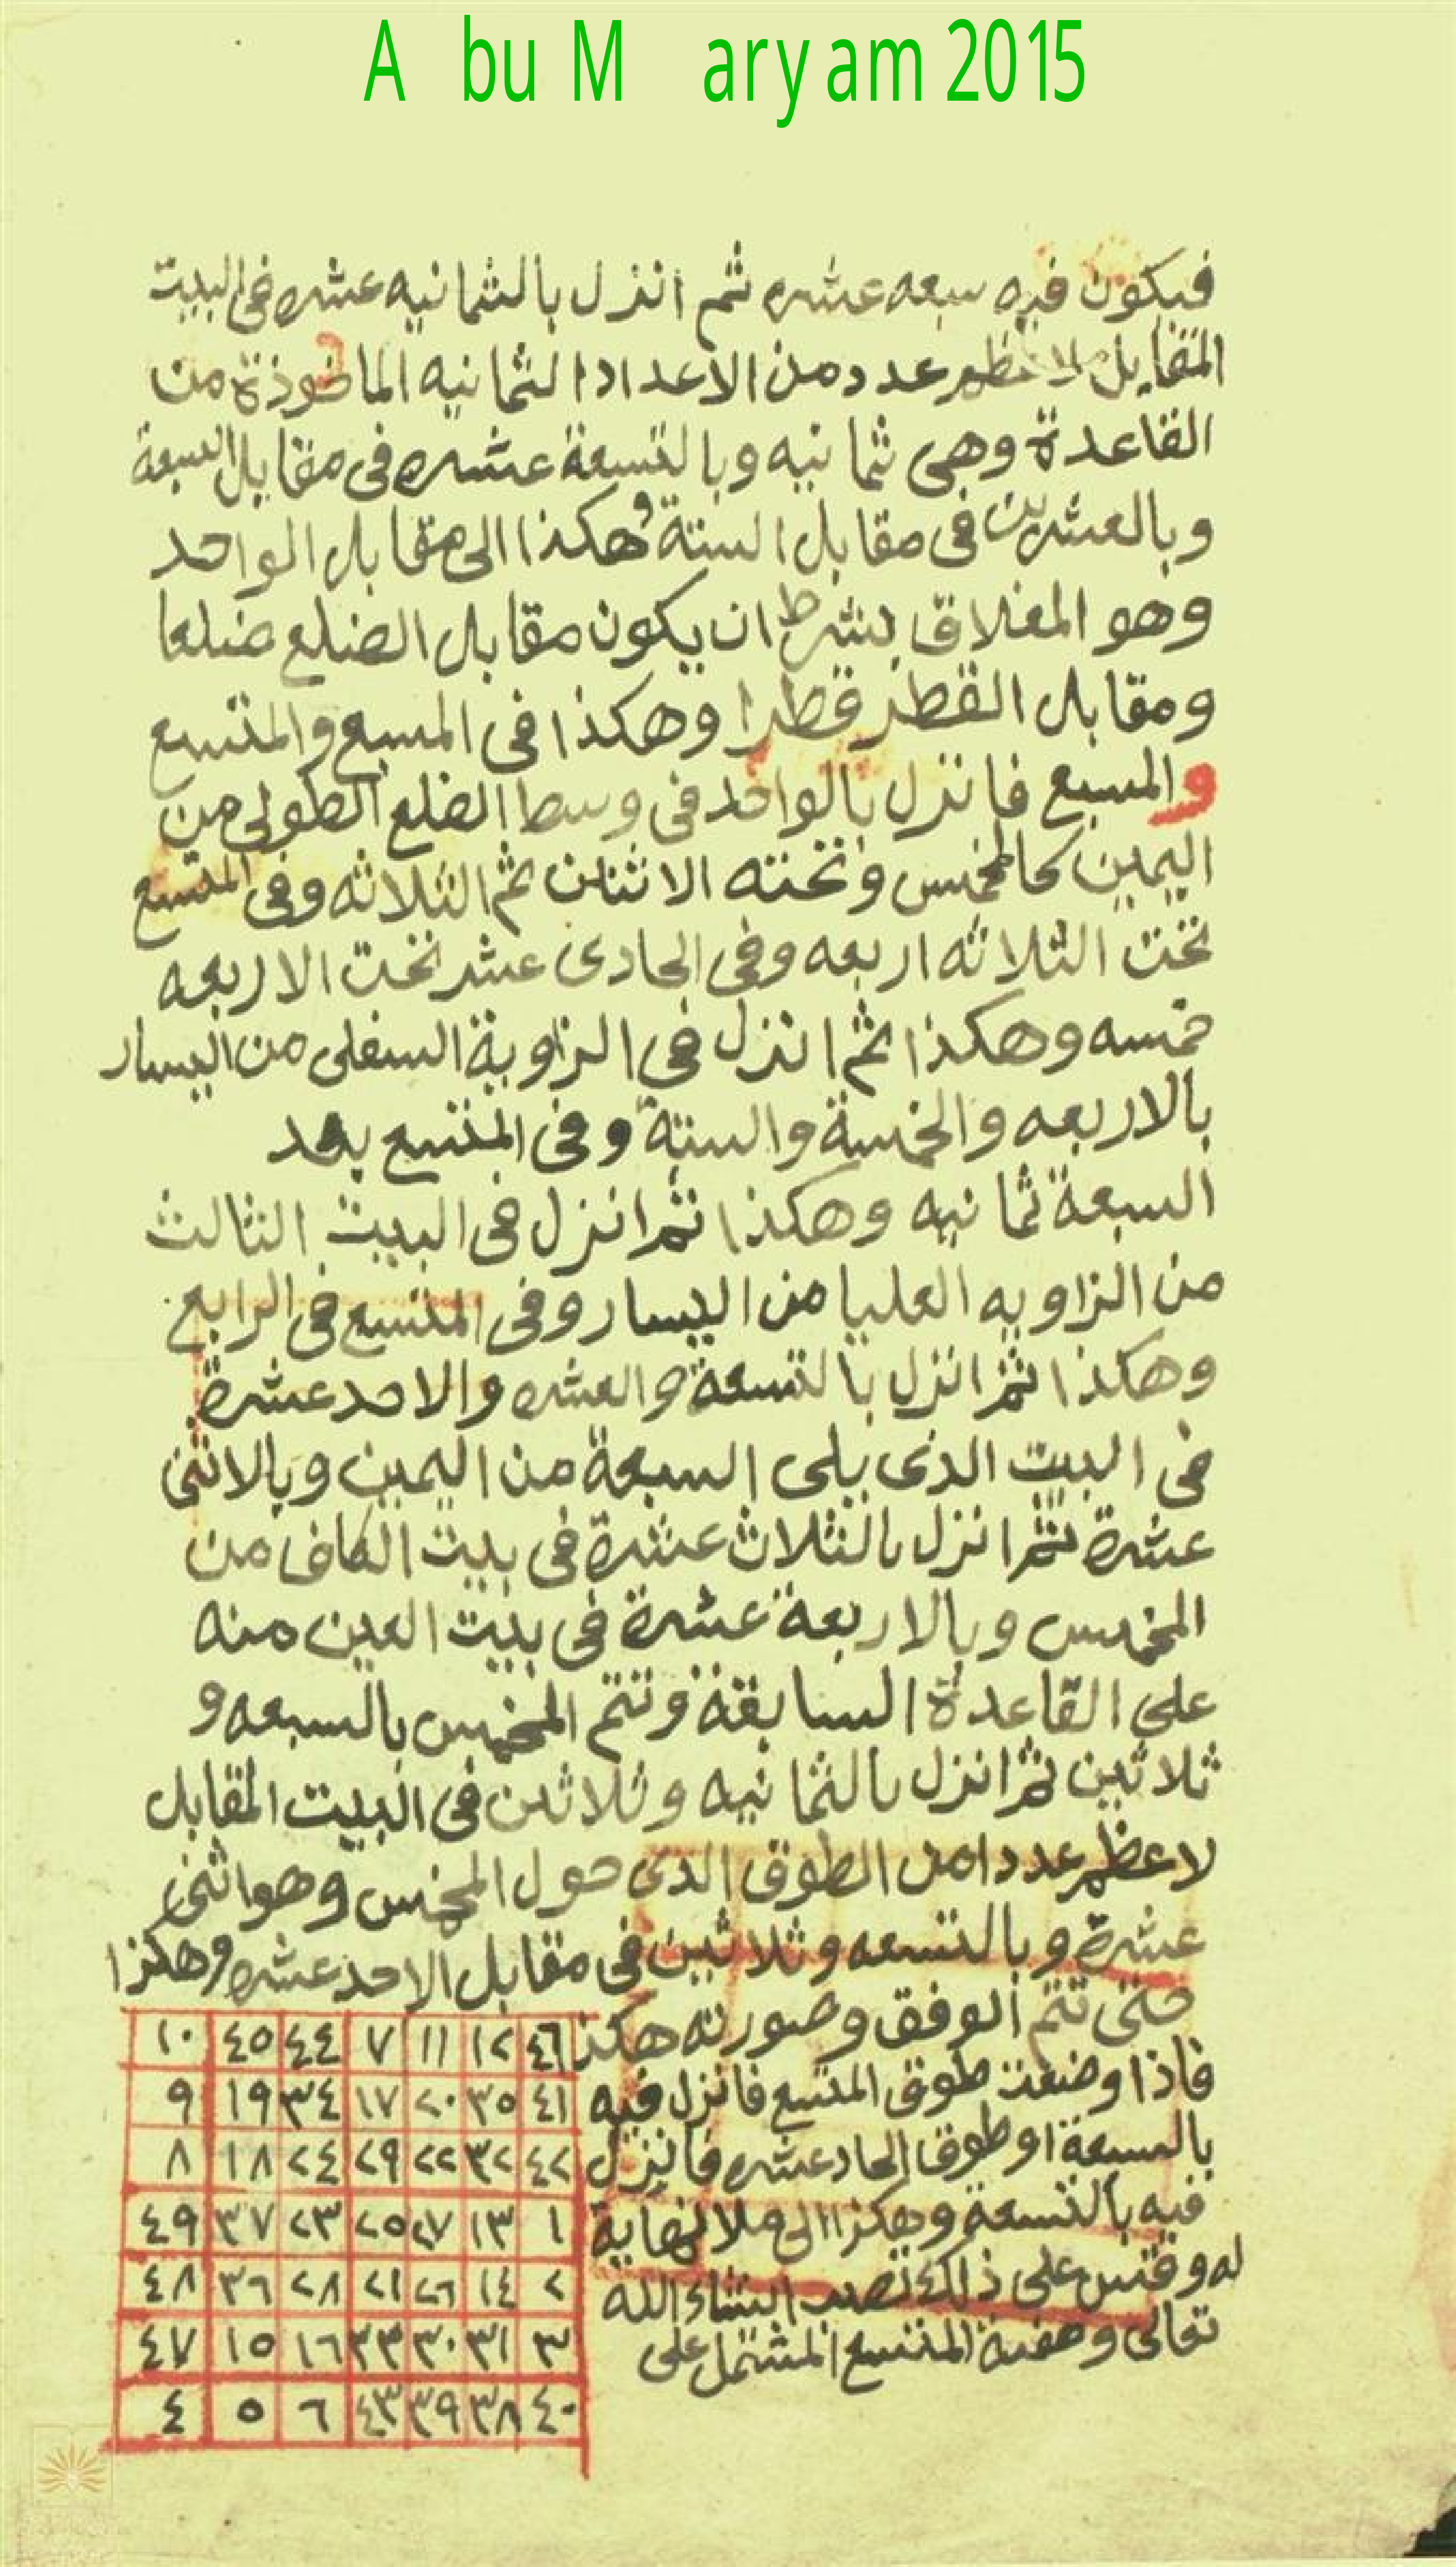 A bu M aryam 2015
فيكون فيه سبعه عشره ثم انزل بالثمانيه عشره فى البيت
المقابل لاعظم عدد من الاعداد الثمانيه الماخوذة من
القاعدة وهى ثمانيه وبالتسعة عشره فى مقابل السبعة
وبالعشرين فى مقابل الستة وهكذا الى مقابل الواحد
وهو المغلاق بشرط ان يكون مقابل الضلع ضلعا
ومقابل القطر قطرا وهكذا فى المسبع والمتسع
والمسبع فانزل بالواحد فى وسط الضلع الطولى من
اليمين كالمخمس وتحته الاثنان ثم الثلاثه وفى المتسع
تحت الثلاثه اربعه وفى الحادى عشر تحت الاربعه
خمسه وهكذا ثم انزل فى الزاوية السفلى من اليسار
بالاربعه والخمسة والستة وفى المتسع بعد
السبعة ثمانيه وهكذا ثم انزل فى البيت الثالث
من الزاويه العليا من اليسار وفى المتسع فى الرابع
وهكذا ثم انزل بالتسعة والعشره والاحد عشرة
فى البيت الذى يلى السبعة من اليمين وبالاثنى
عشرة ثم انزل بالثلاث عشرة فى بيت الكاف من
المخمس وبالاربعة عشرة فى بيت العين منه
على القاعدة السابقة وتتم المخمس بالسبعه و
ثلاثين ثم انزل بالثمانيه وثلاثين فى البيت المقابل
لاعظم عددا من الطوق الذى حول المخمس وهو اثنى
عشرة وبالتسعه وثلاثين فى مقابل الاحد عشره وهكذا
حتى تتم الوفق وصورته هكذا
فاذا وضعت طوق المتسع فانزل فيه
بالسبعة او طوق الحاد عشره فانزل
فيه بالتسعة وهكذا الى ملا نهاية
له وقس على ذالك تصب انشاء الله
تعالى وصفة المتسع المشتمل على
٤٦ ١٢ ١١ ٧ ٤٤ ٤٥ ١٠
٤١ ٣٥ ٢٠ ١٧ ٣٤ ١٩ ٩
٤٢ ٣٢ ٢٢ ٢٩ ٢٤ ١٨ ٨
١ ١٣ ٢٧ ٢٥ ٢٣ ٣٧ ٤٩
٢ ١٤ ٢٦ ٢١ ٢٨ ٣٦ ٤٨
٣ ٣١ ٣٠ ٣٣ ١٦ ١٥ ٤٧
٤٠ ٣٨ ٣٩ ٤٣ ٦ ٥ ٤